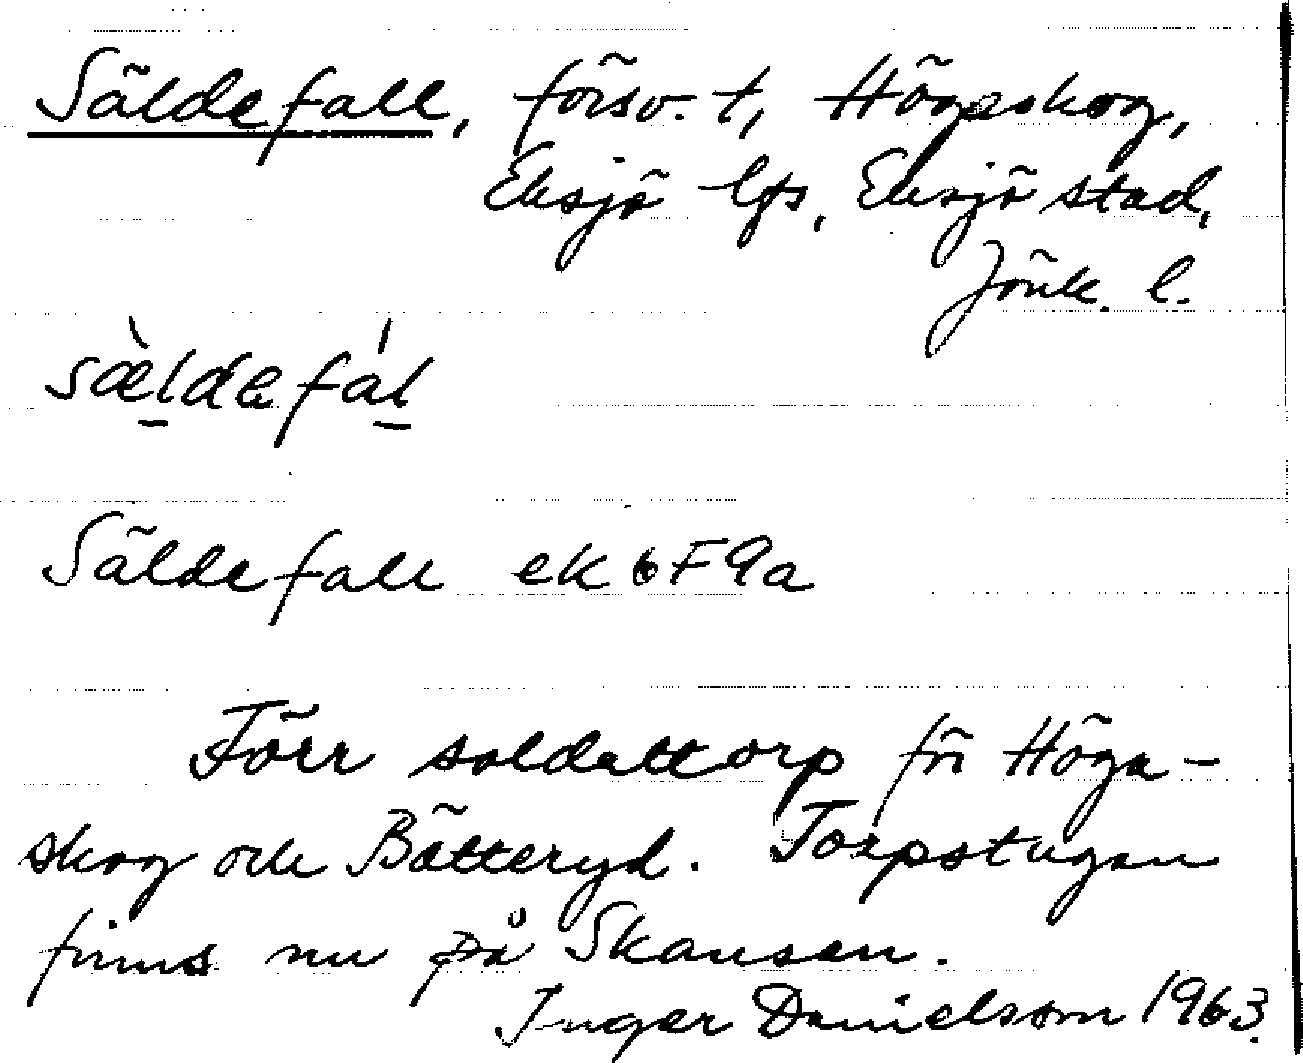 Säldefall, försv. t, Högaskog,
Eksjö lfs, Eksjö stad,
Jönk. l.
sæ̀ldefál
Säldefall ek 6F9a
Förr soldattorp för Höga-
skog och Bätteryd. Torpstugan
finns nu på Skansen.
Inger Danielsson 1963.